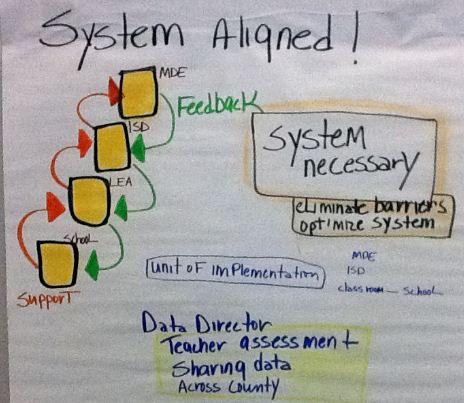 System Aligned!
MDE
Feedback
ISD
LEA
School
Support
System
necessary
eliminate barriers
optimize system
unit of implementation
MDE
ISD
classroom – School
Data Director
Teacher assessment
Sharing data
Across County